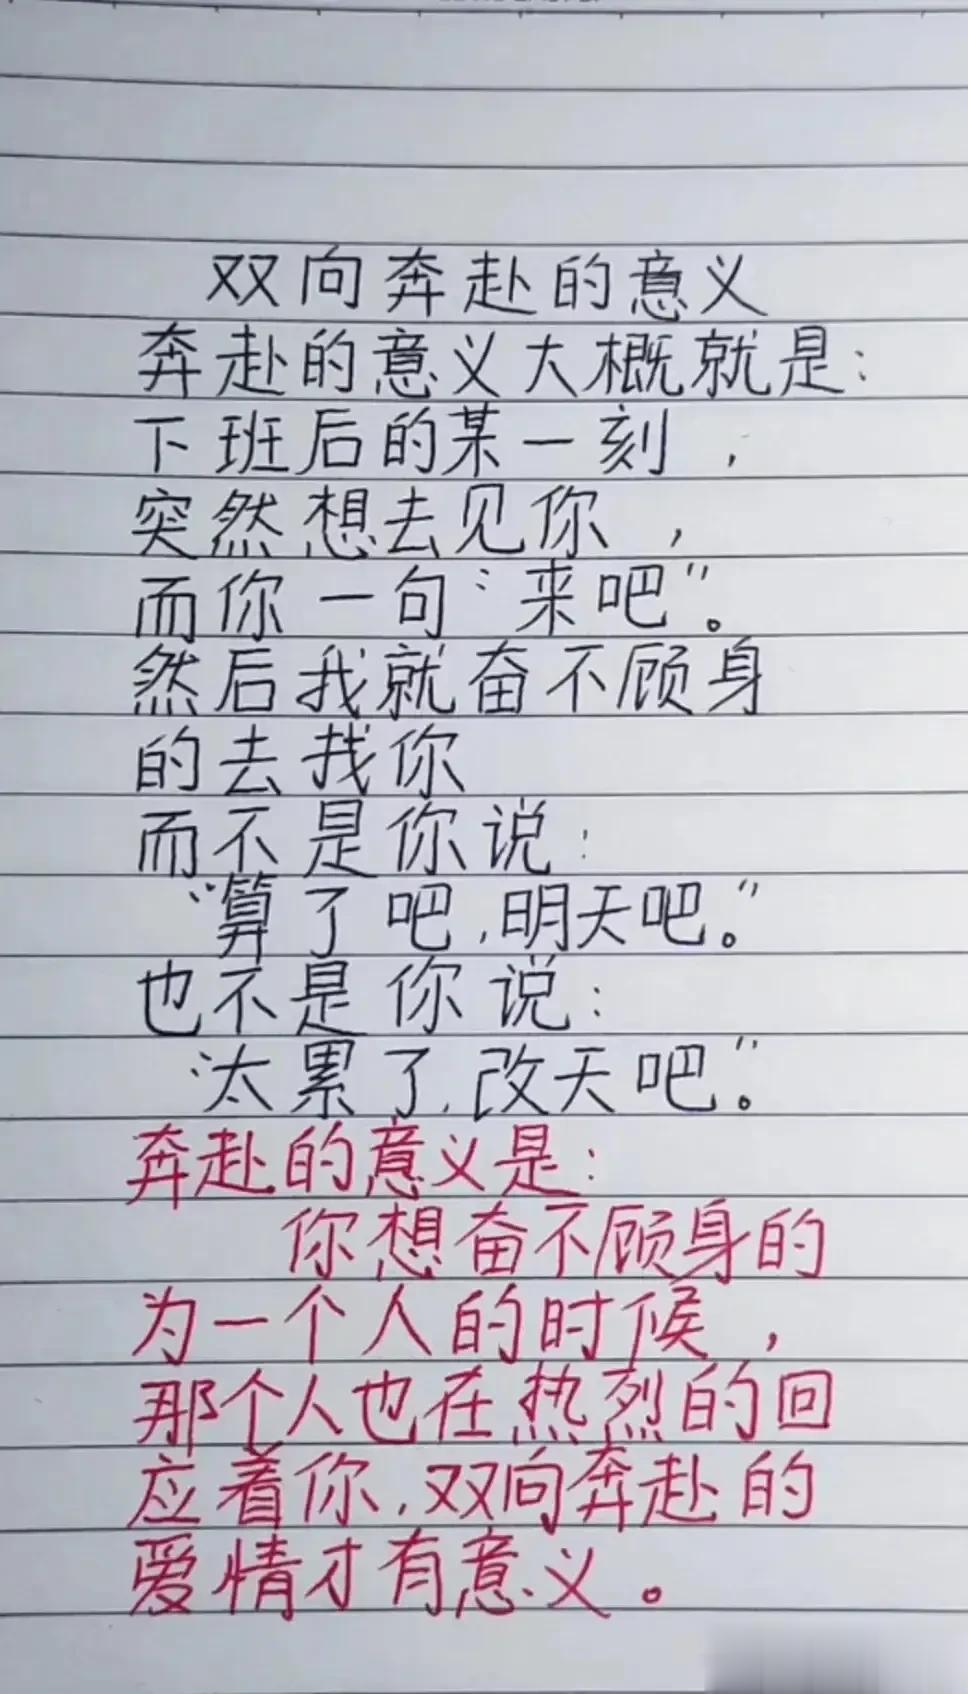 双向奔赴的意义
奔赴的意义大概就是：
下班后的某一刻，
突然想去见你，
而你一句“来吧”。
然后我就奋不顾身
的去找你
而不是你说：
“算了吧，明天吧。”
也不是你说：
“太累了，改天吧”。
奔赴的意义是：
你想奋不顾身的
为一个人的时候，
那个人也在热烈的回
应着你，双向奔赴的
爱情才有意义。